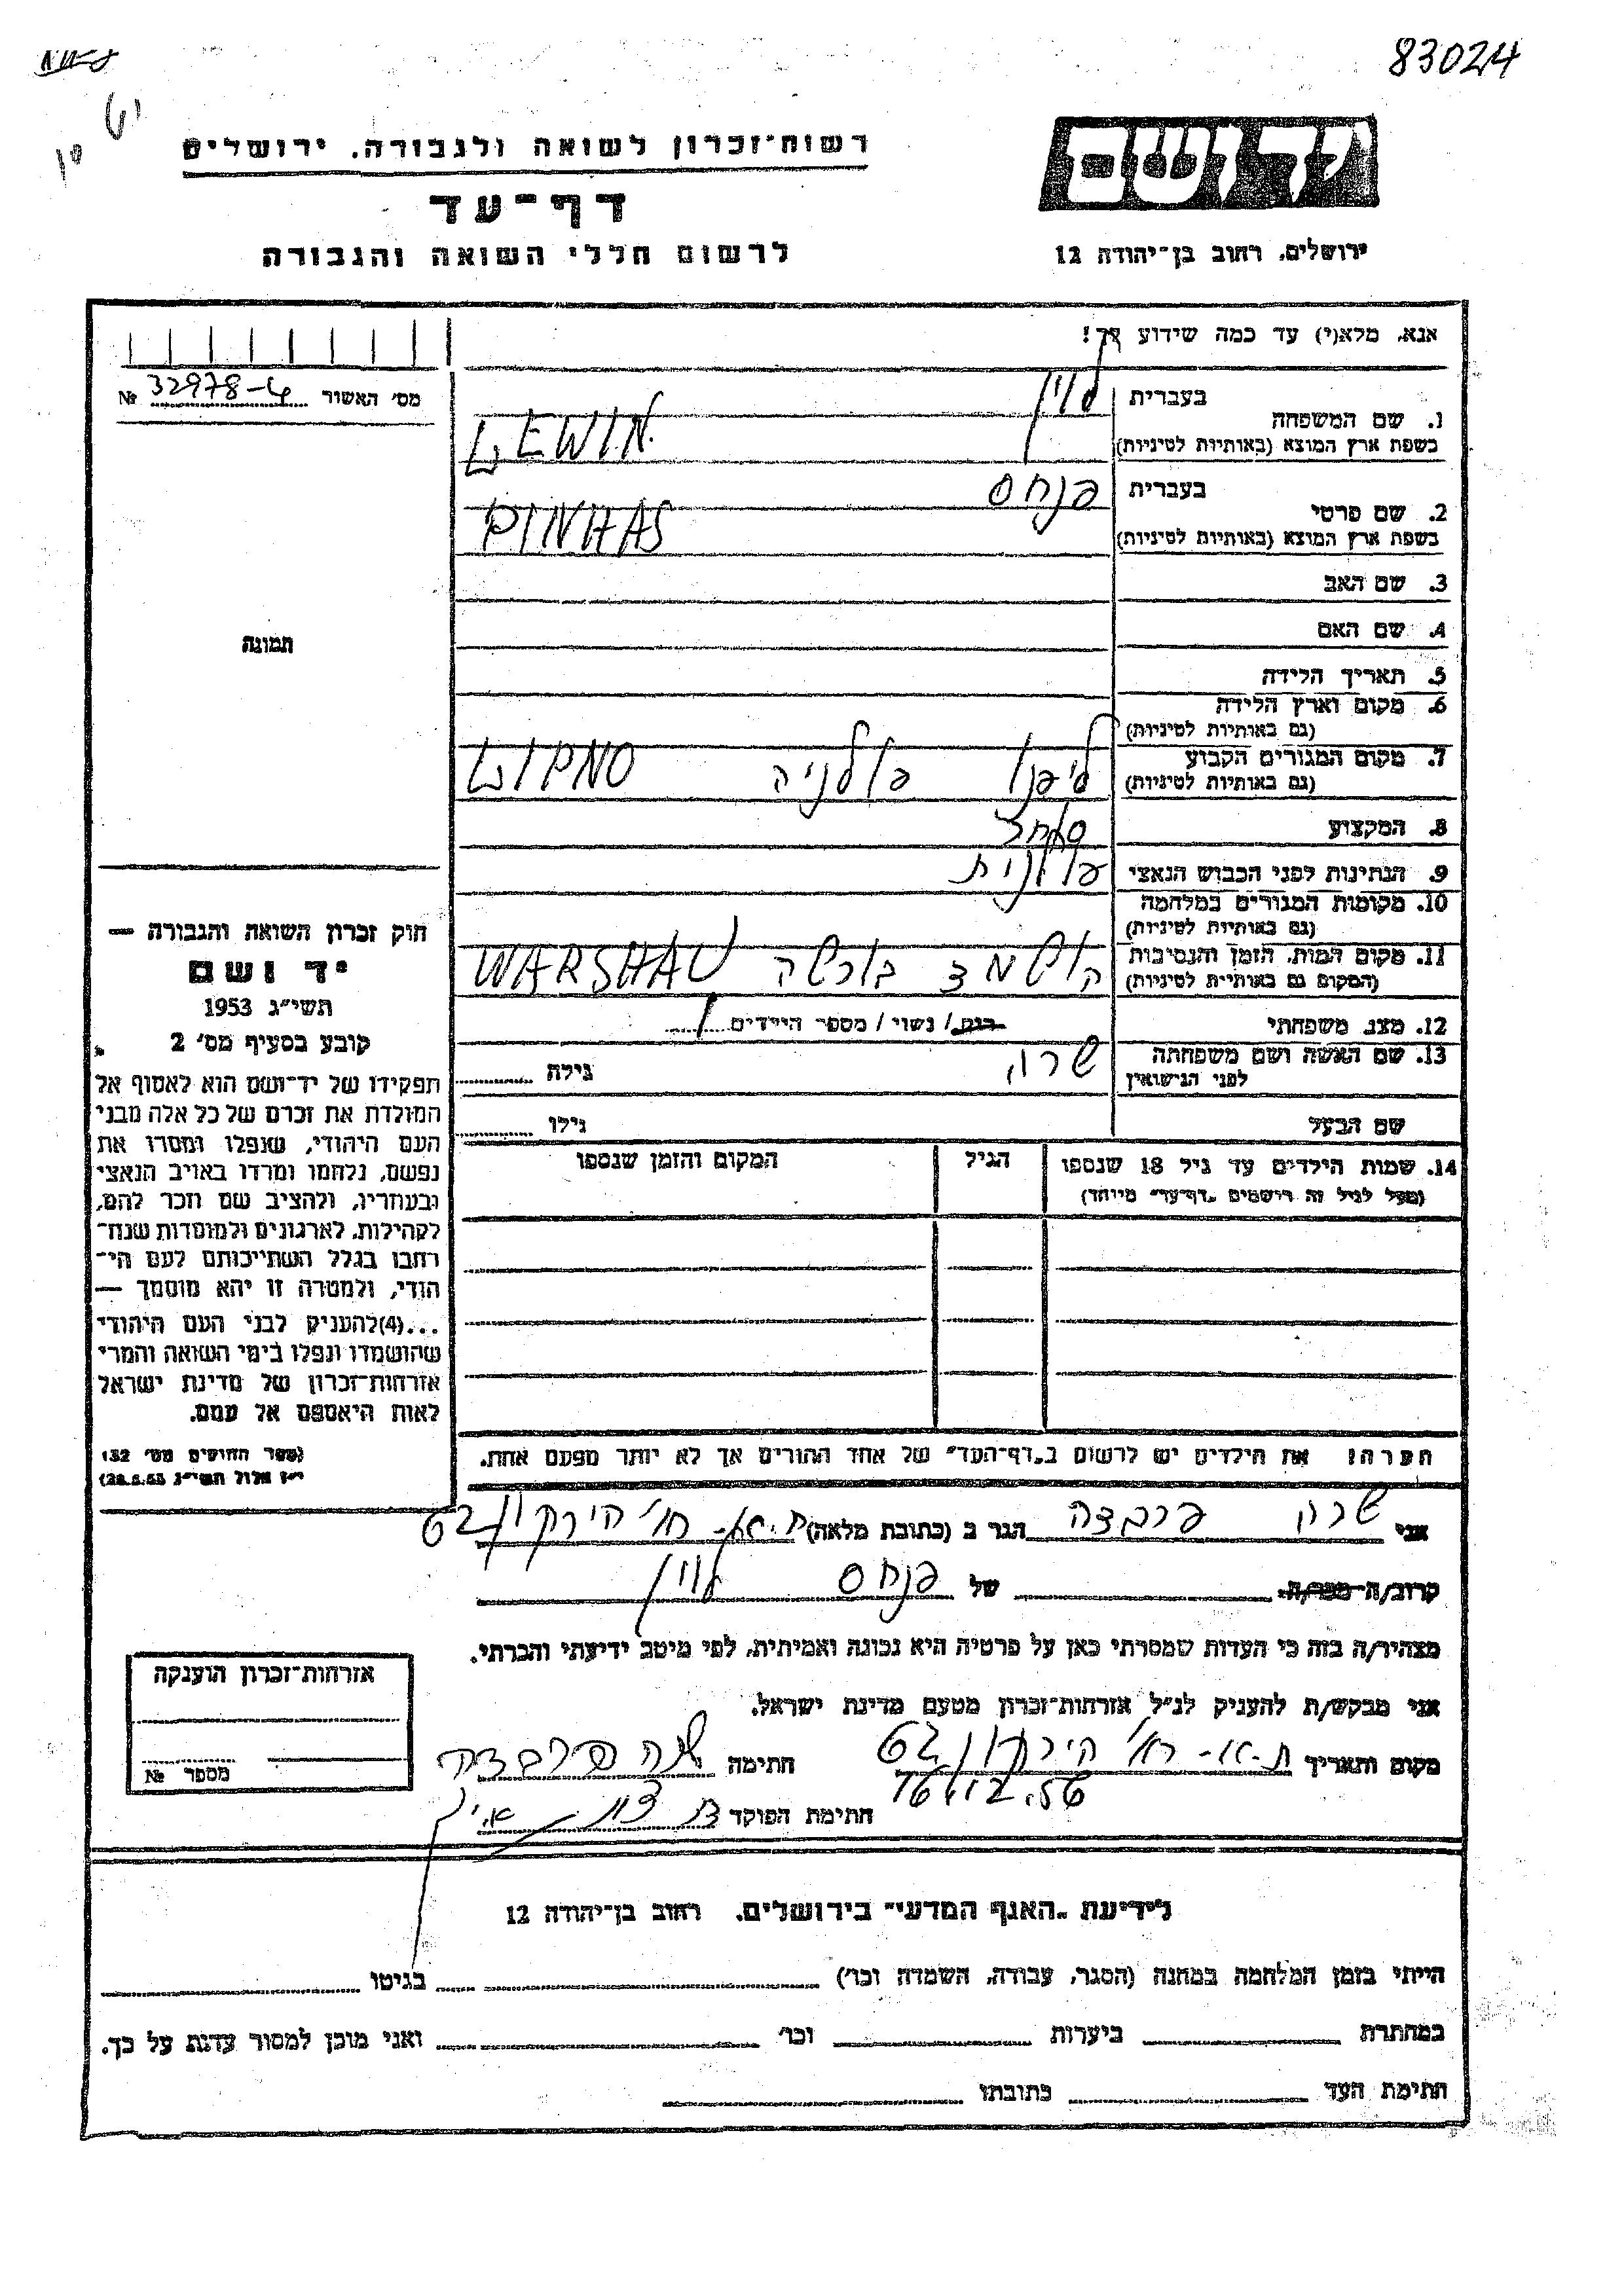 83024
יד ושם
רשות־זכרון לשואה ולגבורה, ירושלים
דף־עד
לרשום חללי השואה והגבורה
ירושלים, רחוב בן־יהודה 12
אנא, מלא(י) עד כמה שידוע לך!
מס׳ האשור 32978-4 №
תמונה
1. שם המשפחה בעברית לוין
בשפת ארץ המוצא (באותיות לטיניות) LEWIN
2. שם פרטי בעברית פנחס
בשפת ארץ המוצא (באותיות לטיניות) PINHAS
3. שם האב
4. שם האם
5. תאריך הלידה
6. מקום וארץ הלידה
(גם באותיות לטיניות)
7. מקום המגורים הקבוע ליפנו פולניה LIPNO
(גם באותיות לטיניות)
8. המקצוע סוחר
9. הנתינות לפני הכבוש הנאצי פולנית
10. מקומות המגורים במלחמה
(גם באותיות לטיניות)
11. מקום המות, הזמן והנסיבות הושמד בורשה WARSHAU
(המקום גם באותיות לטיניות)
12. מצב משפחתי רווק / נשוי / מספר הילדים 1
13. שם האשה ושם משפחתה שרה גילה
לפני הנישואין
שם הבעל גילו
14. שמות הילדים עד גיל 18 שנספו הגיל המקום והזמן שנספו
(מעל לגיל זה רושמים „דף־עד״ מיוחד)
חוק זכרון השואה והגבורה —
יד ושם
תשי״ג 1953
קובע בסעיף מס׳ 2
תפקידו של יד־ושם הוא לאסוף אל
המולדת את זכרם של כל אלה מבני
העם היהודי, שנפלו ומסרו את
נפשם, נלחמו ומרדו באויב הנאצי
ובעוזריו, ולהציב שם וזכר להם,
לקהילות, לארגונים ולמוסדות שנח־
רבו בגלל השתייכותם לעם הי־
הודי, ולמטרה זו יהא מוסמך —
...(4) להעניק לבני העם היהודי
שהושמדו ונפלו בימי השואה והמרי
אזרחות־זכרון של מדינת ישראל
לאות היאספם אל עמם.
(ספר החוקים מס׳ 132
י״ז אלול תשי״ג 28.8.53)
הערה: את הילדים יש לרשום ב„דף־העד״ של אחד ההורים אך לא יותר מפעם אחת.
אני שרה הגר ב (כתובת מלאה) ת-א- רח׳ הירקון 62
קרוב/ה מכר/ה של פנחס לוין
מצהיר/ה בזה כי העדות שמסרתי כאן על פרטיה היא נכונה ואמיתית, לפי מיטב ידיעתי והכרתי.
אני מבקש/ת להעניק לנ״ל אזרחות־זכרון מטעם מדינת ישראל.
מקום ותאריך ת-א- רח׳ הירקון 62 חתימה
16.12.56
חתימת הפוקד
אזרחות־זכרון הוענקה
מספר №
לידיעת „האגף המדעי״ בירושלים, רחוב בן־יהודה 12
הייתי בזמן המלחמה במחנה (הסגר, עבודה, השמדה וכו׳) בגיטו
במחתרת ביערות וכו׳ ואני מוכן למסור עדות על כך.
חתימת העד כתובתו